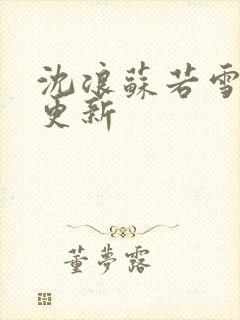 沈浪蘇若雪
更新
董夢露